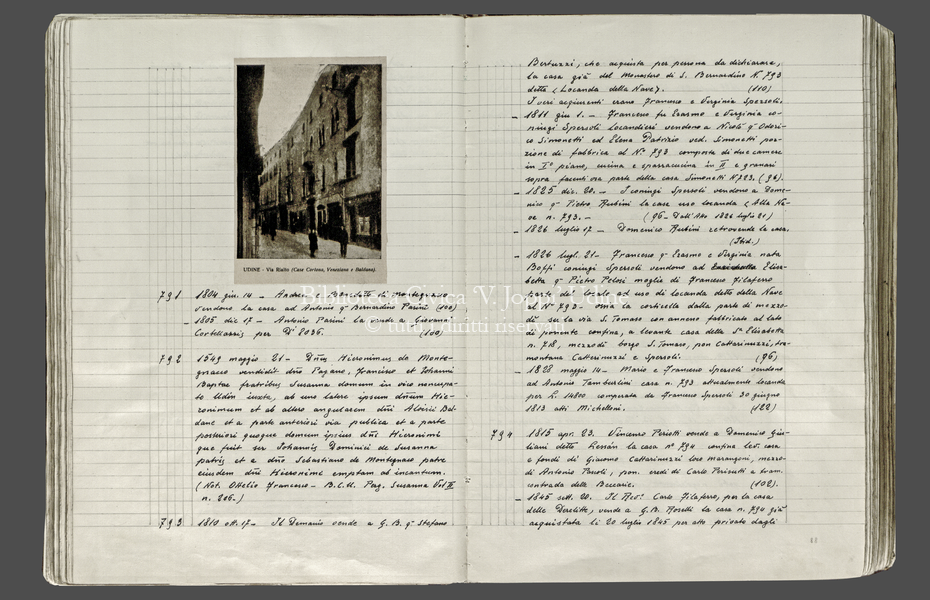 UDINE - Via Rialto (Case Cortona, Veneziana e Baldana).
791 1804 giu. 14 - Andrea e Benedetto di Montegnaco
vendono la casa ad Antonio q.m Bernardino Parini (100)
1805 dic 17 - Antonio Parini la vende a Giovanni
Cortellazzis per D.i 2036. (100)
792 1549 maggio 21 - Dñus Hieronimus de Monte-
gnacco vendidit dño Pagano, Francisco et Johanni
Baptae fratribus Susanna domum in vico noncupa-
to Udin iuxta, ab uno latere ipsum dñum Hie-
ronimum et ab altero angularem dñi Aloisii Bal-
dane et a parte anteriori via publica et a parte
posteriori quoque domum ipsius dñi Hieronimi
que fuit ser Johannis Dominici de Susanna
patris et a dño Sebastiano de Montegnaco patre
eiusdem dñi Hieronimi emptam ab incantum.
(Not. Ottelio Francesco - B.C.U. Pag. Susanna Vol II
n. 206.)
793 1810 ott. 17 - Il Demanio vende a G. B. q.m Stefano
Bertuzzi, che acquista per persona da dichiarare,
la casa già del Monastero di S. Bernardino N. 793
detta (Locanda della Nave). (110)
I veri acquirenti erano Francesco e Virginia Spersoli.
- 1811 giu 1. - Francesco fu Erasmo e Virginia co-
niugi Spersoli Locandieri vendono a Nicolò q.m Odori-
co Simonetti ed Elena Patrizio ved. Simonetti por-
zione di fabbrica al N.o 793 composta di due camere
in I.o piano, cucina e spazzacucina in II e granari
sopra facenti ora parte della casa Simonetti N. 723. (96).
- 1825 dic. 20. - I coniugi Spersoli vendono a Dome-
nico q.m Pietro Rubini la casa uso locanda (Alla Na-
ve n. 793. - (96 - Dall'Atto 1826 luglio 21)
- 1826 luglio 17 - Domenico Rubini retrovende la casa.
(Ibid.)
- 1826 lugl. 21 - Francesco q.m Erasmo e Virginia nata
Boffi coniugi Spersoli vendono ad Elisa-
betta q.m Pietro Pelosi moglie di Francesco Filaferro
parte del locale ad uso di Locanda detto della Nave
al N.o 793 - ora la corticella dalla parte di mezzo-
dì su la via S. Tomaso con annesso fabbricato al lato
di ponente confina, a levante casa della S.a Elisabetta
n. 718, mezzodì borgo S. Tomaso, pon Cattarinuzzi, tra-
montana Cattarinuzzi e Spersoli. (96)
- 1828 maggio 14 - Mario e Francesco Spersoli vendono
ad Antonio Tamburlini casa n. 793 attualmente locanda
per L. 14800 comperata da Francesco Spersoli 30 giugno
1813 atti Michelloni. (122)
794 1815 apr. 23. Vincenzo Periotti vende a Domenico Giu-
liani detto Lessàn la casa n.o 794 confina lev. casa
e fondi di Giacomo Cattarinuzzi loco marangoni, mezzo-
dì Antonio Paroli, pon. eredi di Carlo Periutti e tram.
contrada delle Beccarie. (102).
- 1845 sett. 20. Il Rev.o Carlo Filaferro, per la casa
delle Derelitte, vende a G. B. Roselli la casa n. 794 già
acquistata li 20 luglio 1845 per atto privato dagli
Biblioteca Civica 'V. Joppi' Udine
© tutti i diritti riservati